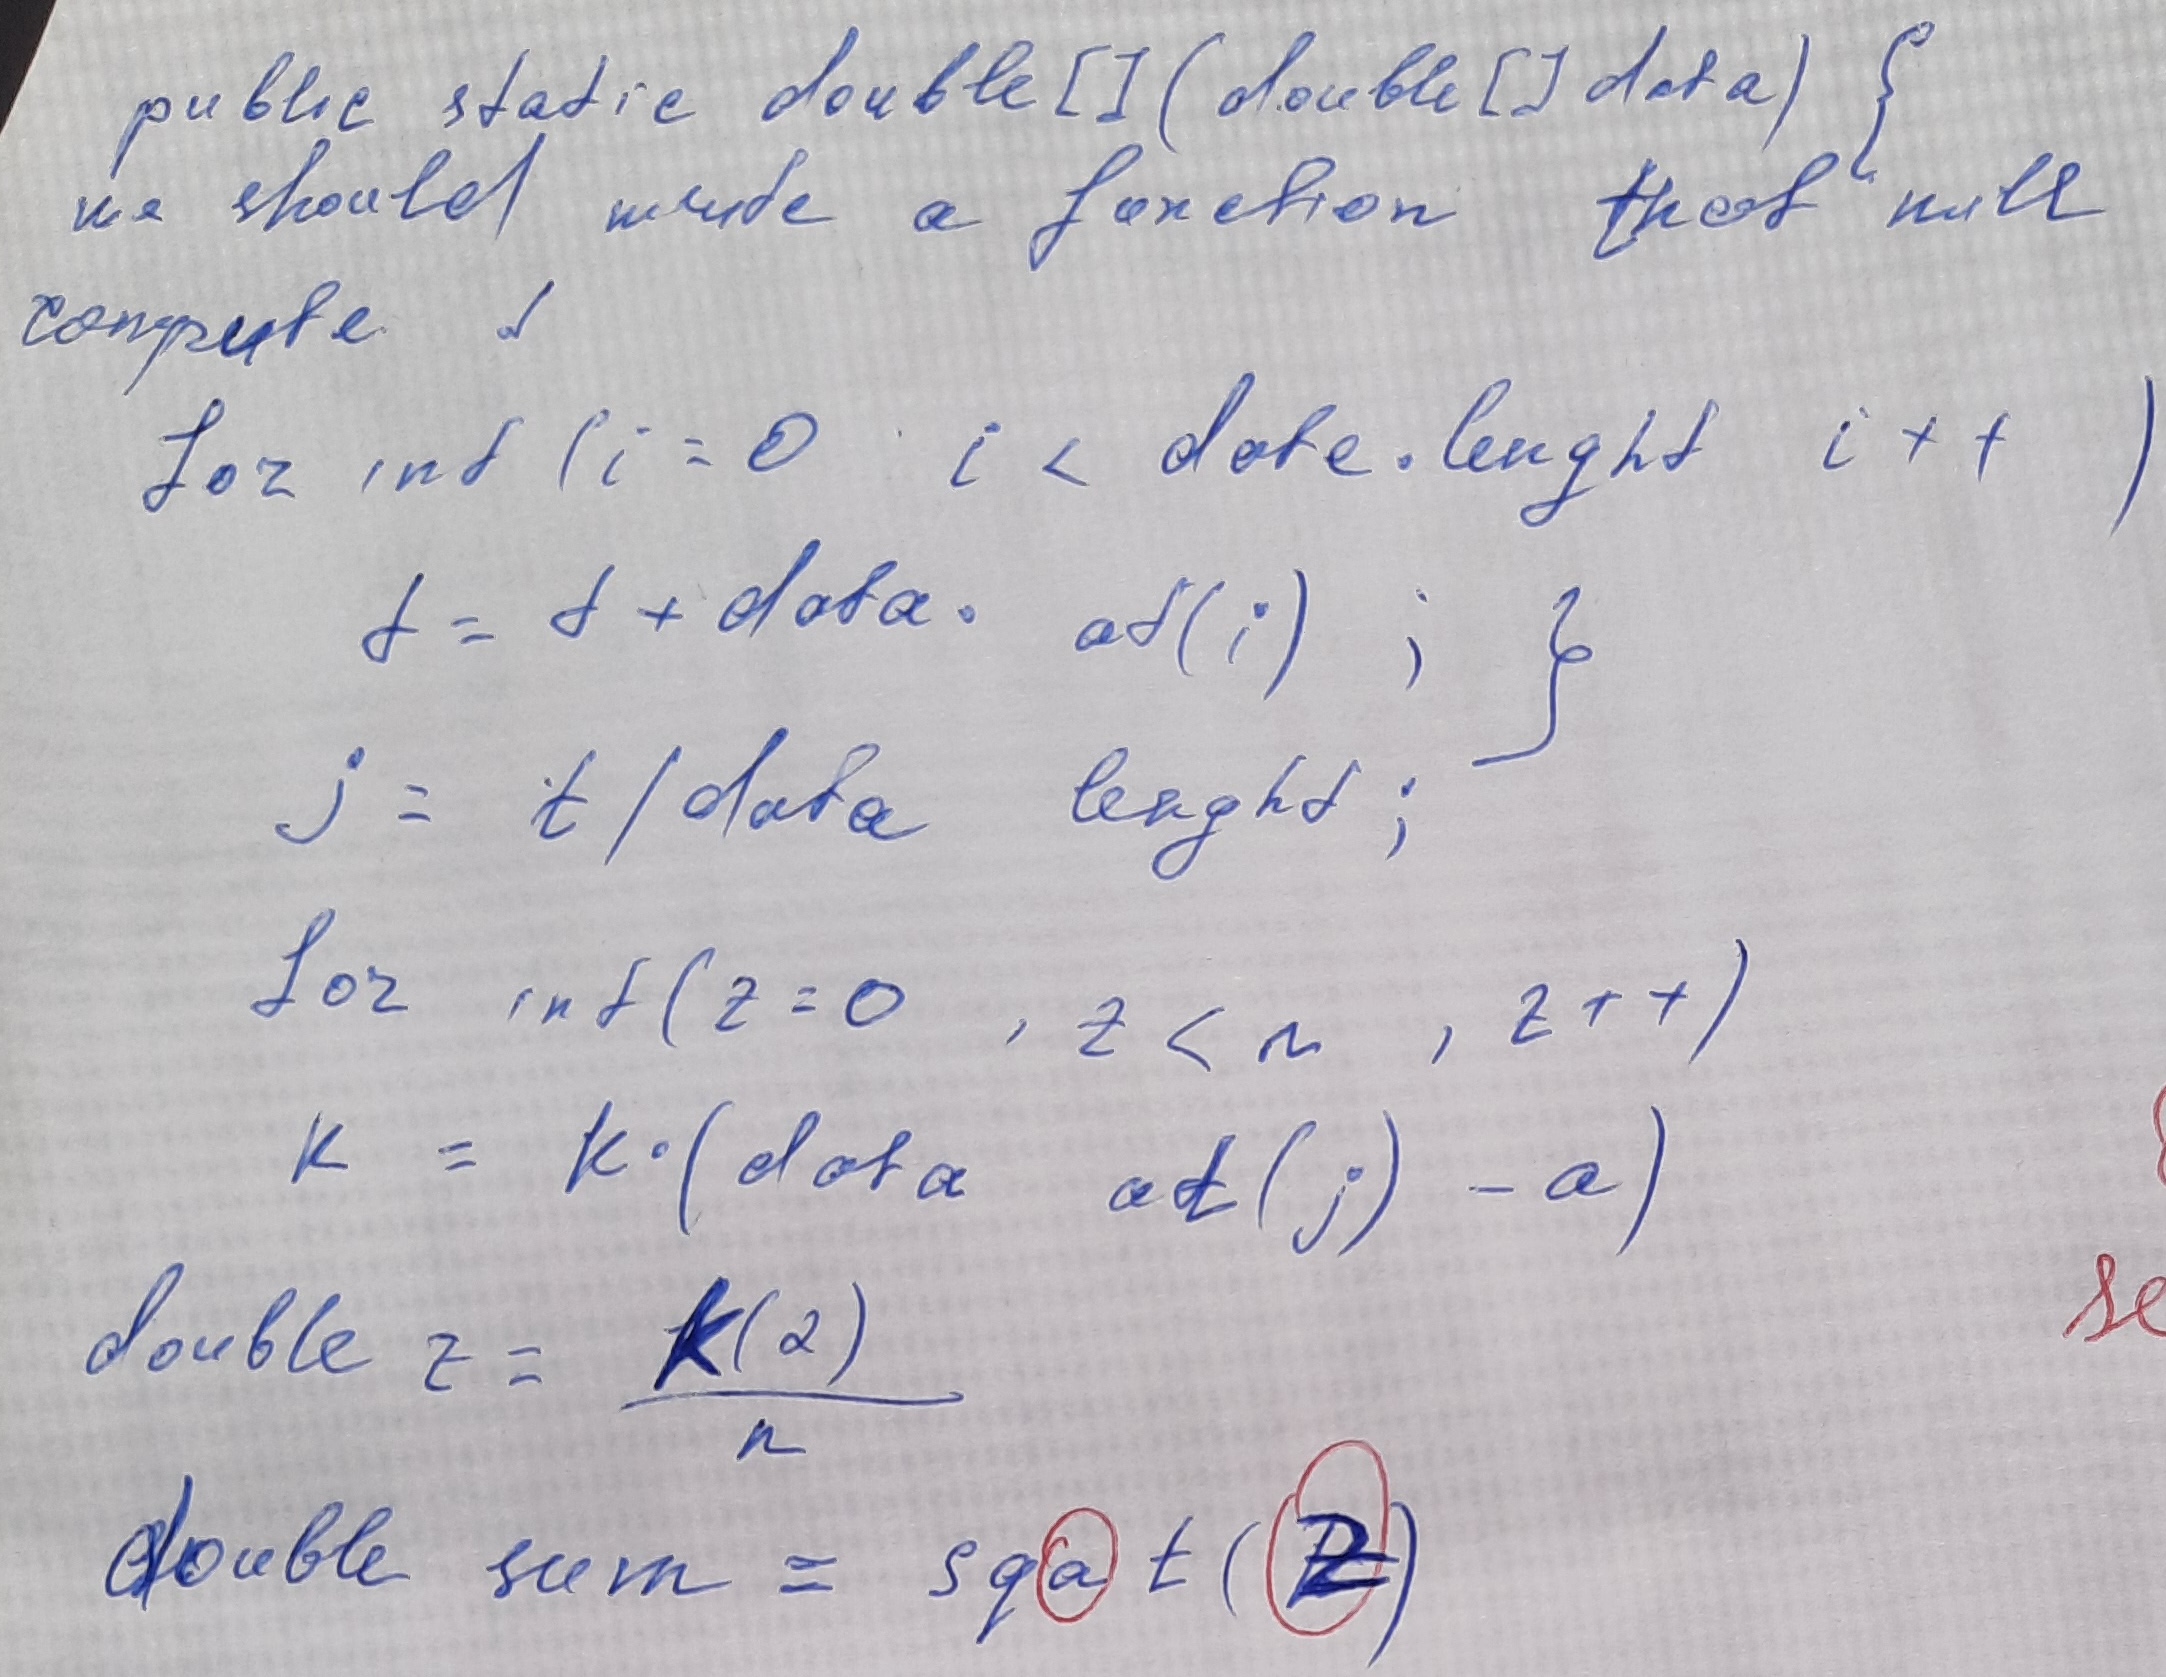 public static double[](double[] data) {
we should write a function that will
compute t
for int (i=0 i < date.lenght i++ )
t = t + data. at(i) ; }
j = t / data lenght ;
for int (z=0 , z < n , z++)
k = k·(data at(j) - a)
double z = k(2)
n
double sum = sqat(z)